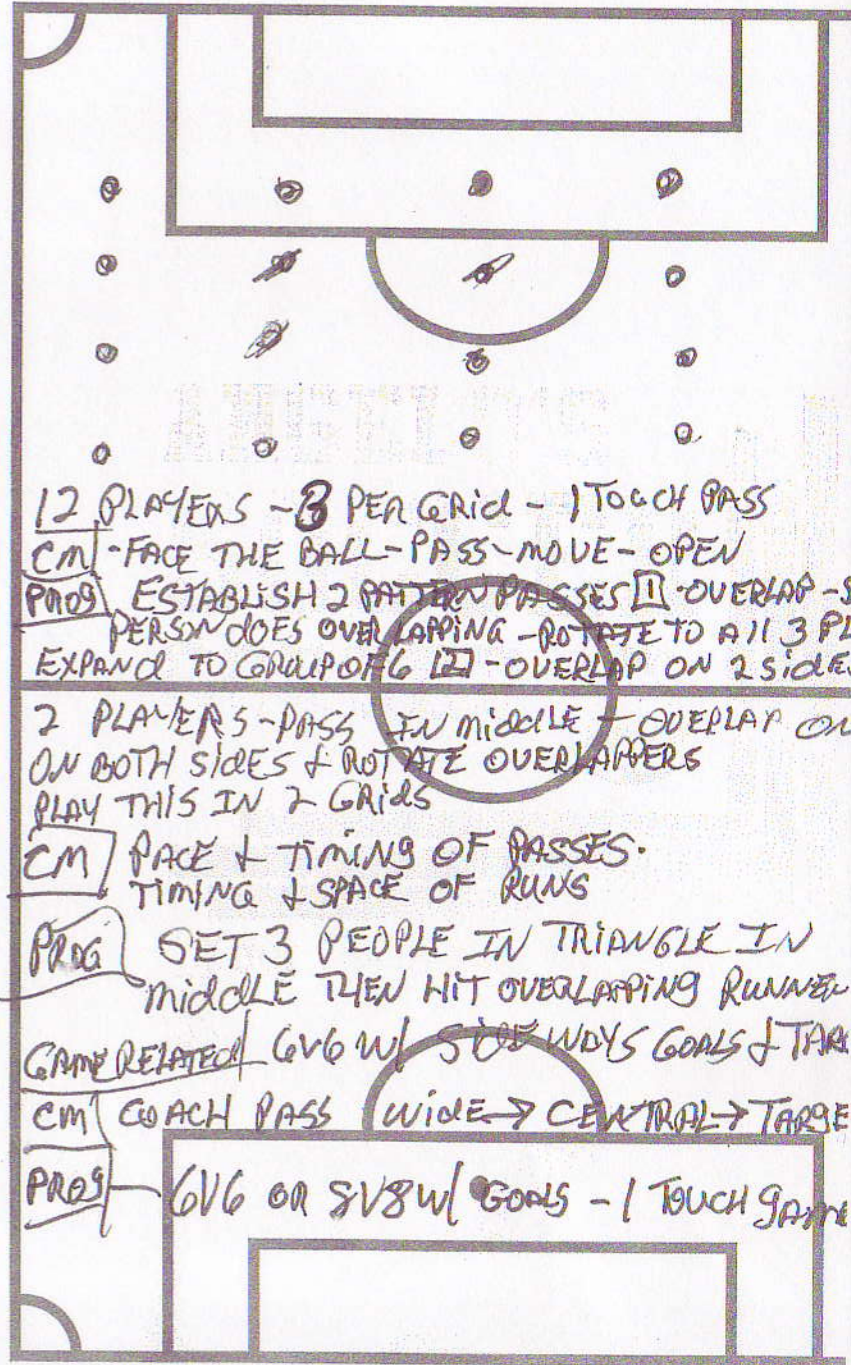 12 PLAYERS - 3 PER GRID - 1 TOUCH PASS
CM - FACE THE BALL - PASS - MOVE - OPEN
PROG ESTABLISH 2 PATTERN PASSES 1 - OVERLAP - S
PERSON DOES OVERLAPPING - ROTATE TO All 3 PL
EXPAND TO GROUP OF 6 2 - OVERLAP ON 2 SIDES
2 PLAYERS - PASS IN MIDDLE - OVERLAP ON
ON BOTH SIDES & ROTATE OVERLAPPERS
PLAY THIS IN 2 GRIDS
CM PACE & TIMING OF PASSES.
TIMING & SPACE OF RUNS
PROG SET 3 PEOPLE IN TRIANGLE IN
MIDDLE THEN HIT OVERLAPPING RUNNER
GAME RELATED 6V6 W/ SIDEWAYS GOALS & TAR
CM COACH PASS WIDE → CENTRAL → TARGE
PROG - 6V6 OR 8V8 W/ GOALS - 1 TOUCH GAME